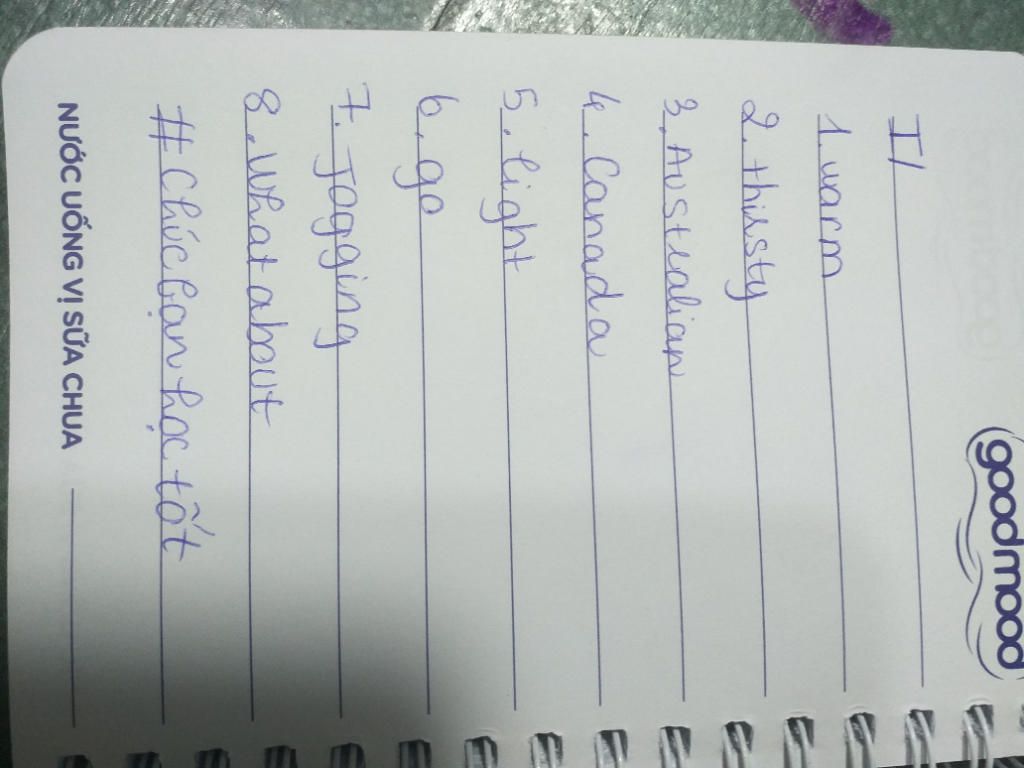 goodmood
I/
1. warm
2. thirsty
3. Australian
4. Canada
5. light
6. go
7. Jogging
8. What about
# Chúc bạn học tốt
NƯỚC UỐNG VỊ SỮA CHUA